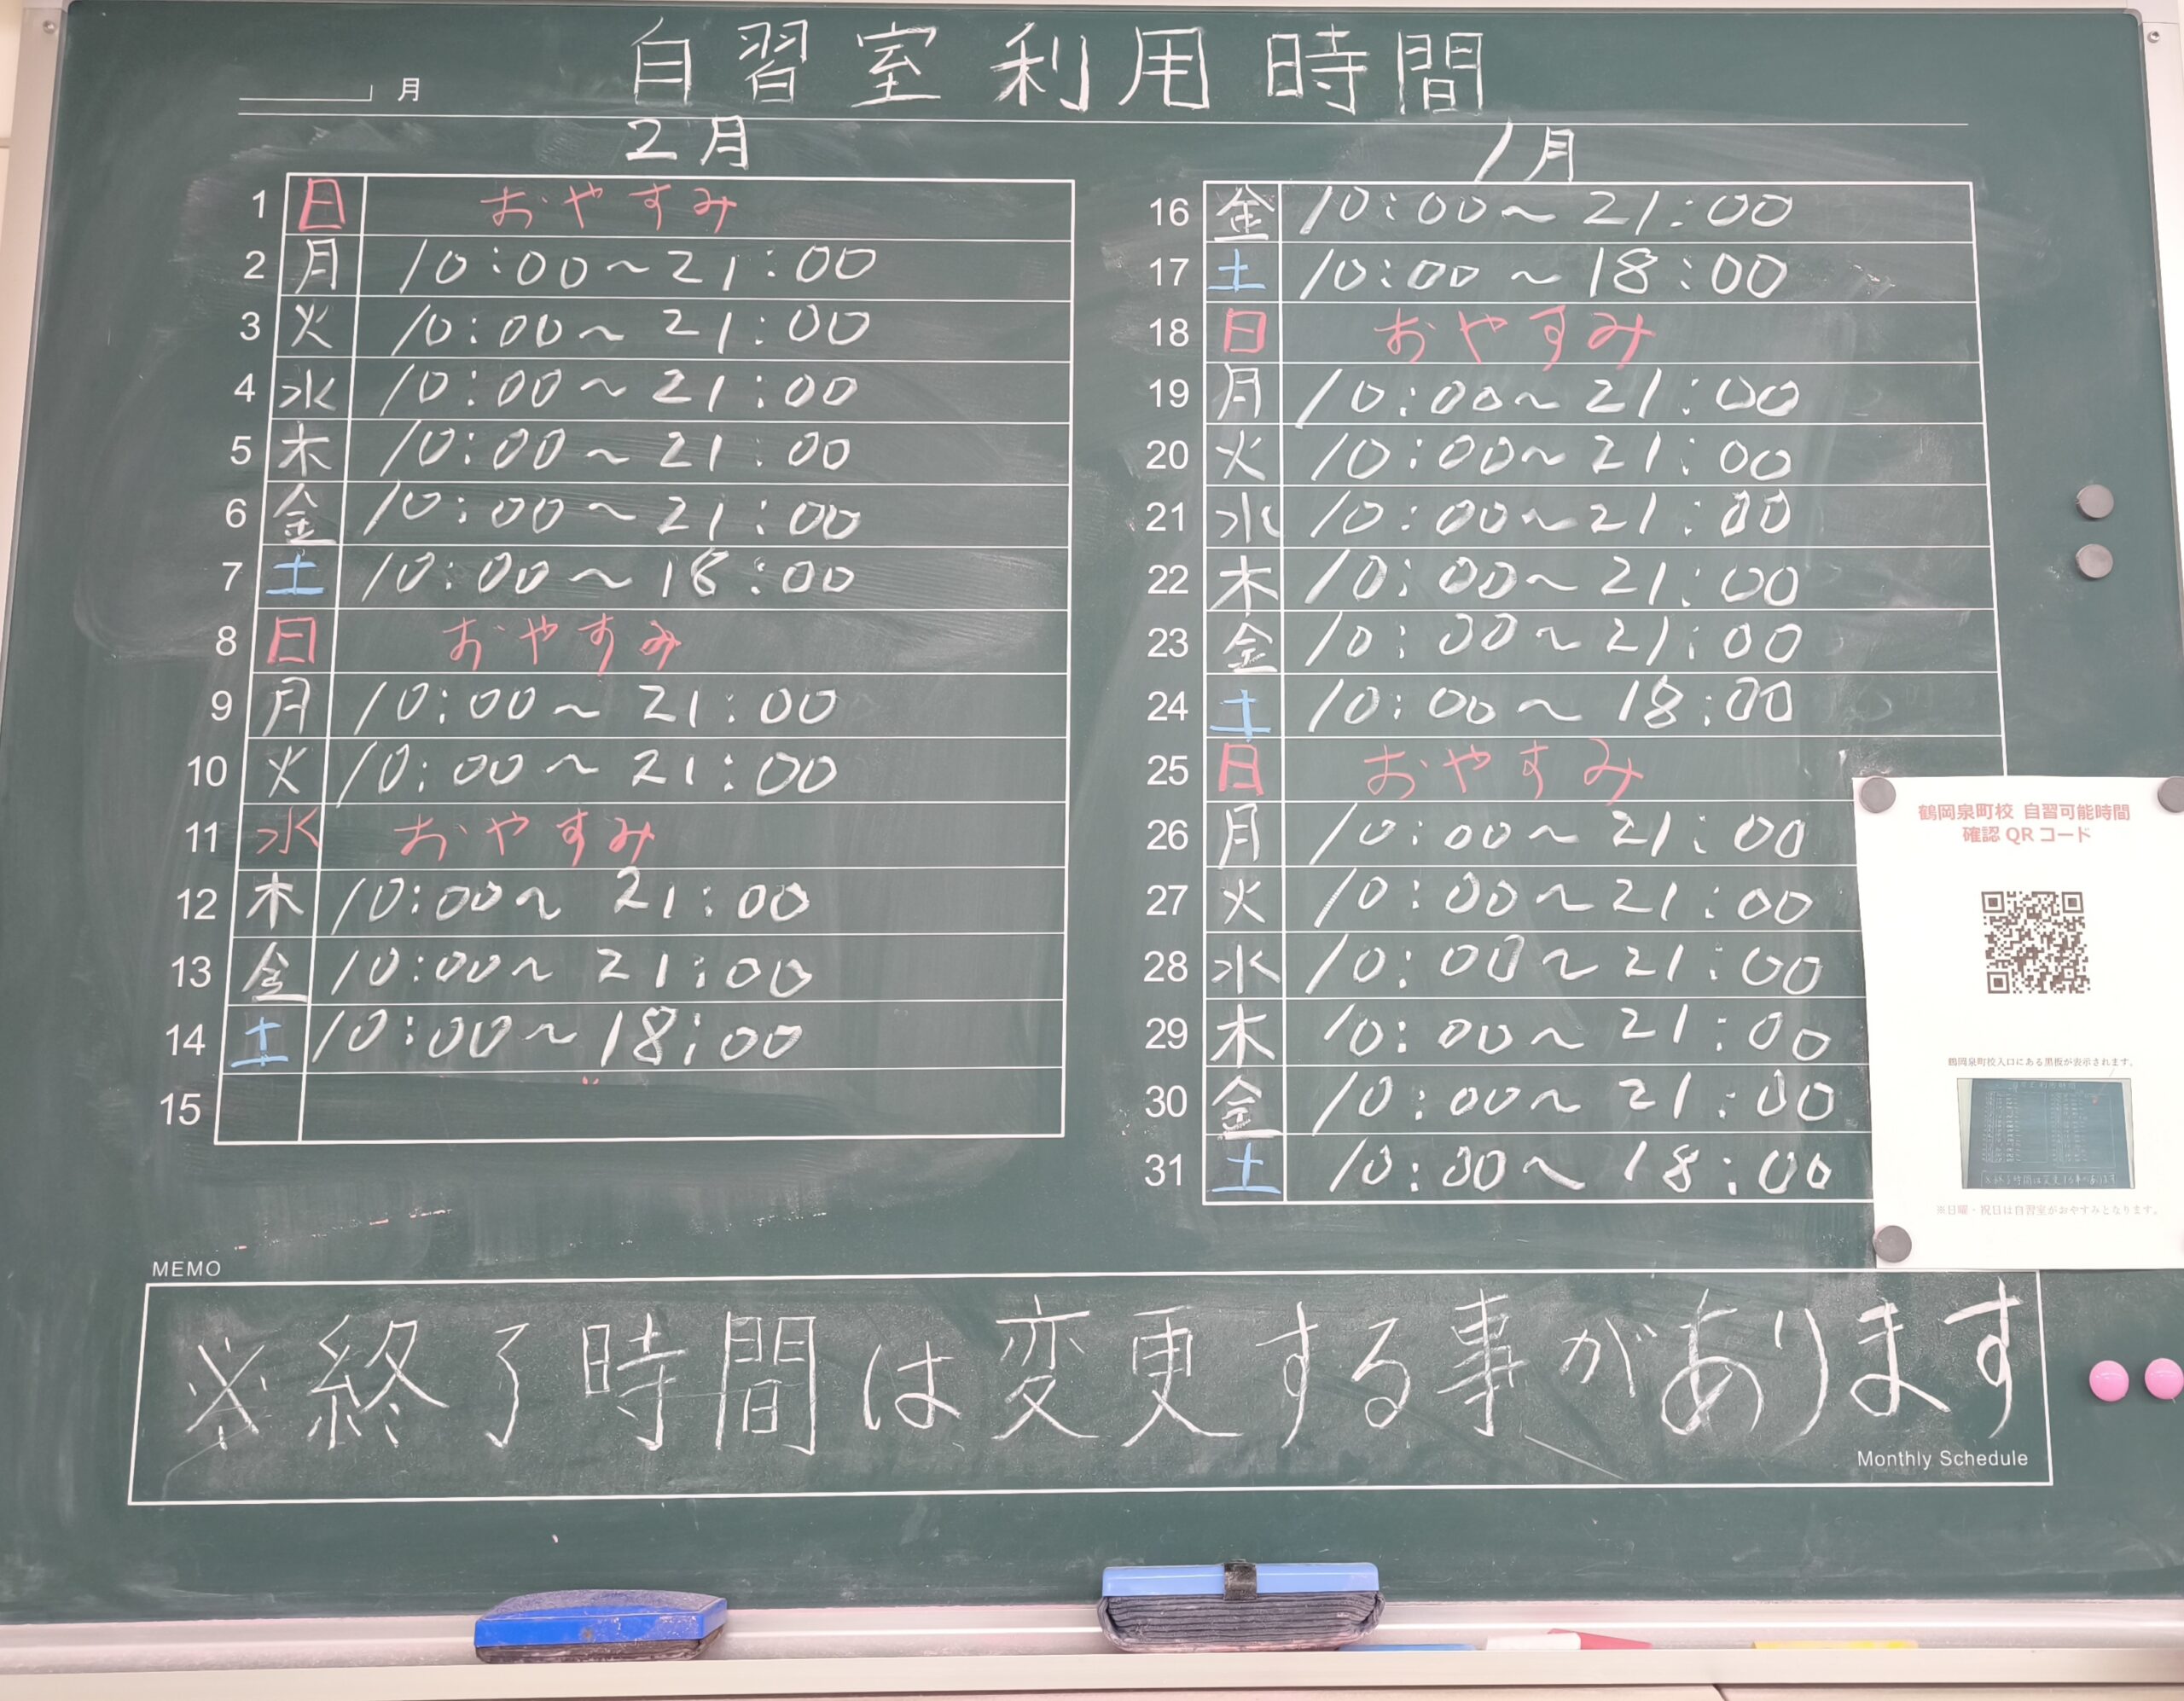 自習室利用時間
月
2月
1 日 おやすみ
2 月 10:00～21:00
3 火 10:00～21:00
4 水 10:00～21:00
5 木 10:00～21:00
6 金 10:00～21:00
7 土 10:00～18:00
8 日 おやすみ
9 月 10:00～21:00
10 火 10:00～21:00
11 水 おやすみ
12 木 10:00～21:00
13 金 10:00～21:00
14 土 10:00～18:00
15
1月
16 金 10:00～21:00
17 土 10:00～18:00
18 日 おやすみ
19 月 10:00～21:00
20 火 10:00～21:00
21 水 10:00～21:00
22 木 10:00～21:00
23 金 10:00～21:00
24 土 10:00～18:00
25 日 おやすみ
26 月 10:00～21:00
27 火 10:00～21:00
28 水 10:00～21:00
29 木 10:00～21:00
30 金 10:00～21:00
31 土 10:00～18:00
鶴岡泉町校 自習可能時間
確認QRコード
鶴岡泉町校入口にある黒板が表示されます。
※終了時間は変更する事があります
※日曜・祝日は自習室がおやすみとなります。
MEMO
※終了時間は変更する事があります
Monthly Schedule